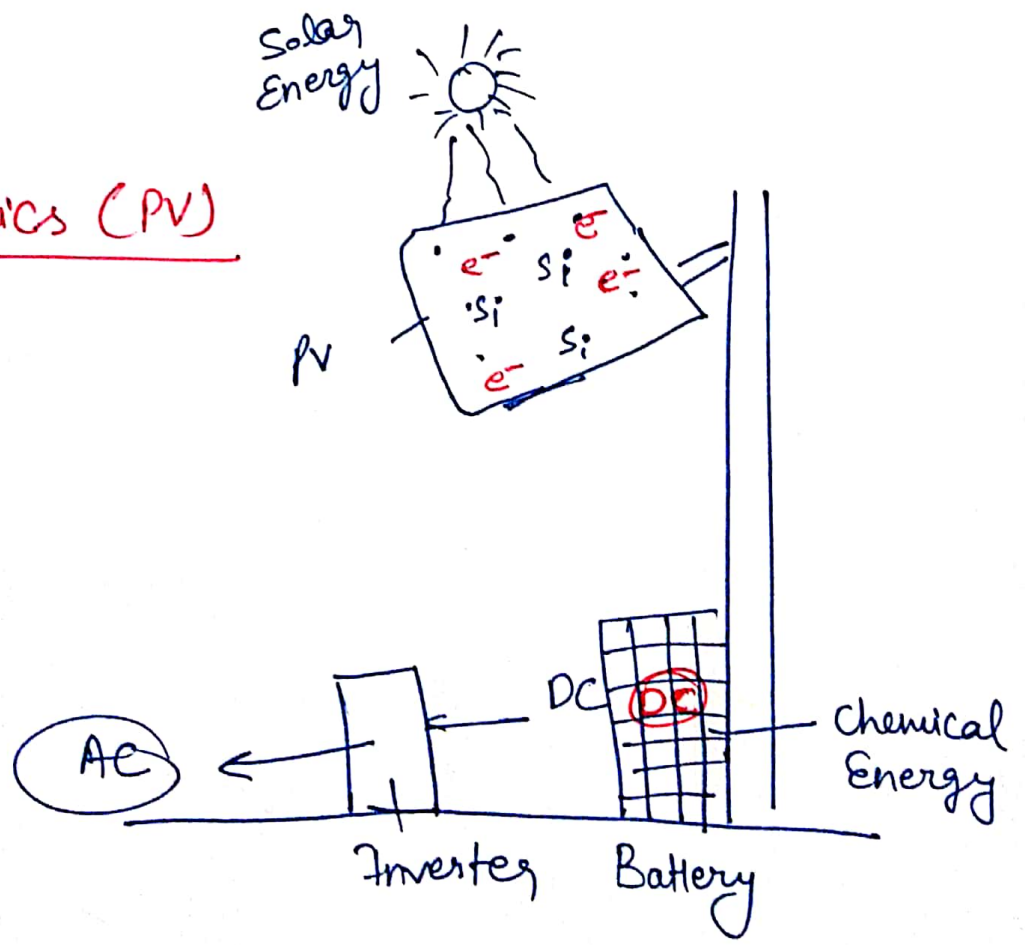 Solar
Energy
ics (PV)
e-
Si
e-
e-
Si
Si
e-
PV
DC
DC
Chemical
Energy
AC
Inverter
Battery